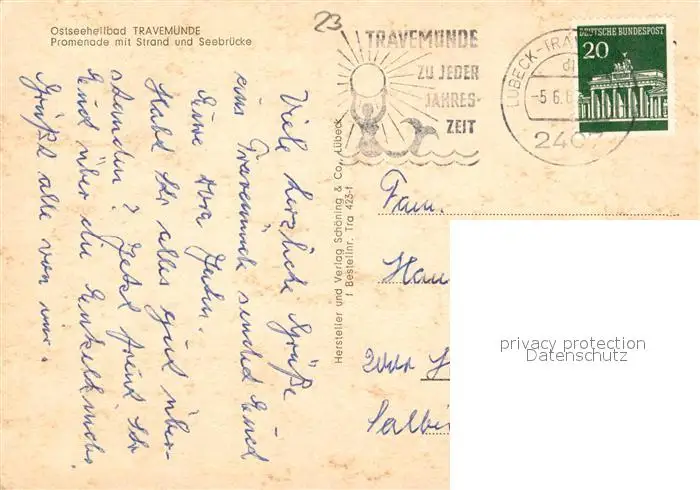 Ostseeheilbad TRAVEMÜNDE
Promenade mit Strand und Seebrücke
23
TRAVEMÜNDE
ZU JEDER
JAHRES-
ZEIT
LÜBECK-TRA
-5.6.6
240
DEUTSCHE BUNDESPOST
20
Viele herzliche Grüße
aus Travemünde sendet Euch
Eure
Habt Ihr alles gut über-
standen? Jetzt freut Ihr
Euch über die Enkeltochter.
Grüßt alle von mir.
Hersteller und Verlag Schöning & Co., Lübeck
Bestellnr. Tra 423-f
Fam.
Hau
privacy protection
Datenschutz